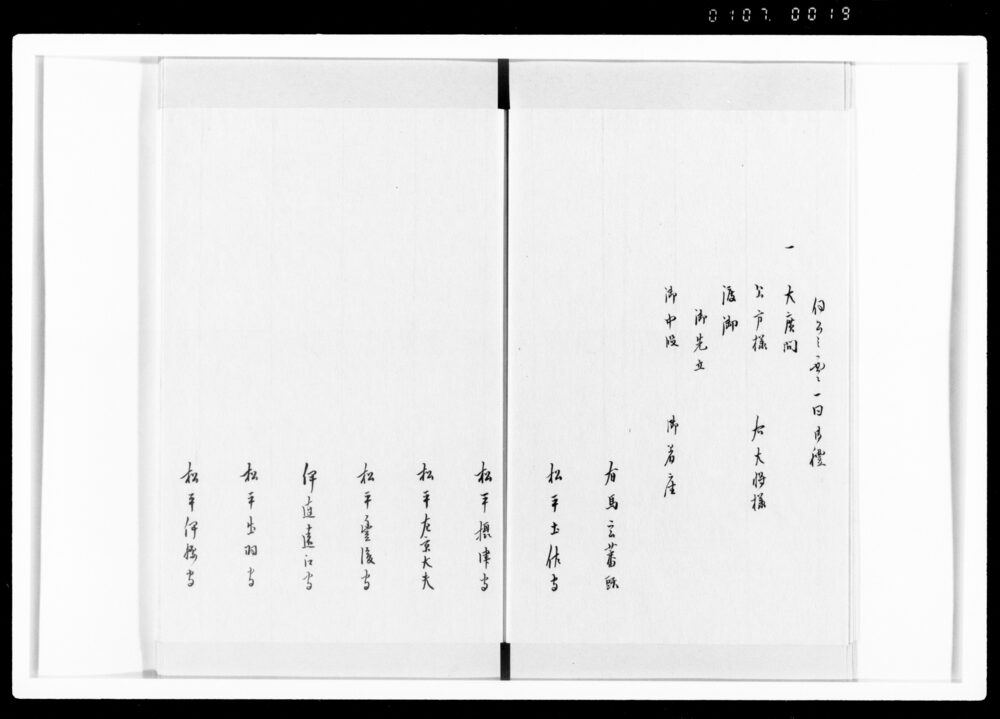 0107. 0019
一 大広間
公方様 右大将様
渡御
御先立
御中段 御着座
有馬玄蕃頭
松平土佐守
松平摂津守
松平左京大夫
松平豊後守
伊達遠江守
松平出羽守
松平伊予守